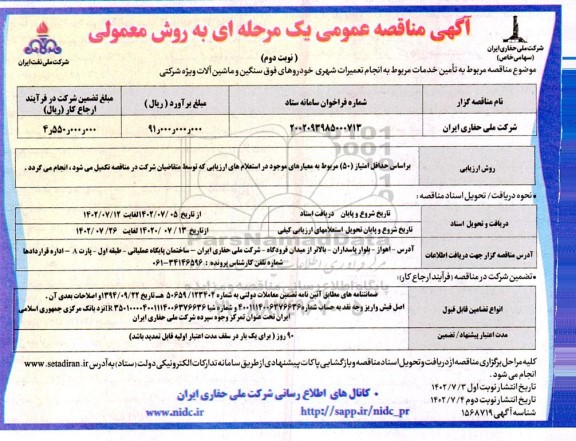 آگهی مناقصه عمومی یک مرحله ای به روش معمولی
شرکت ملی حفاری ایران
(سهامی خاص)
شرکت ملی نفت ایران
( نوبت دوم )
موضوع مناقصه مربوط به تأمین خدمات مربوط به انجام تعمیرات شهری خودروهای فوق سنگین و ماشین آلات ویژه شرکتی
نام مناقصه گزار
شماره فراخوان سامانه ستاد
مبلغ برآورد ( ریال )
مبلغ تضمین شرکت در فرآیند ارجاع کار (ریال)
شرکت ملی حفاری ایران
۲۰۰۲۰۹۳۹۸۵۰۰۰۷۱۳
۹۱,۰۰۰,۰۰۰,۰۰۰
۴,۵۵۰,۰۰۰,۰۰۰
روش ارزیابی
براساس حداقل امتیاز (۵۰) مربوط به معیارهای موجود در استعلام های ارزیابی که توسط متقاضیان شرکت در مناقصه تکمیل می شود ، انجام می گردد .
- نحوه دریافت / تحویل اسناد مناقصه :
دریافت و تحویل اسناد
تاریخ شروع و پایان دریافت اسناد
از تاریخ ۱۴۰۲/۰۷/۰۵ لغایت ۱۴۰۲/۰۷/۱۲
تاریخ شروع و پایان تحویل استعلامهای ارزیابی کیفی
از تاریخ ۱۴۰۲/۰۷/۱۳ لغایت ۱۴۰۲/۰۷/۲۶
آدرس مناقصه گزار جهت دریافت اطلاعات
آدرس : اهواز - بلوار پاسداران - بالاتر از میدان فرودگاه - شرکت ملی حفاری ایران - ساختمان پایگاه عملیاتی - طبقه اول - پارت ۸ - اداره قراردادها
شماره تلفن کارشناس پرونده : ۳۴۱۴۶۵۹۶-۰۶۱
- تضمین شرکت در مناقصه (فرآیند ارجاع کار):
انواع تضامین قابل قبول
ضمانتنامه های مطابق آئین نامه تضمین معاملات دولتی به شماره ۱۲۳۴۰۲/ت۵۰۶۵۹ هـ تاریخ ۱۳۹۴/۰۹/۲۲ و اصلاحات بعدی آن .
اصل فیش واریز وجه نقد به حساب شماره ۴۰۰۱۱۱۴۰۰۶۳۷۶۶۳۶ و شماره شبا IR۳۵۰۱۰۰۰۰۴۰۰۱۱۱۴۰۰۶۳۷۶۶۳۶ نزد بانک مرکزی جمهوری اسلامی ایران تحت عنوان تمرکز وجوه سپرده شرکت ملی حفاری ایران
مدت اعتبار پیشنهاد/ تضمین
۹۰ روز ( برای یک بار در سقف مدت اعتبار اولیه قابل تمدید باشد)
کلیه مراحل برگزاری مناقصه از دریافت و تحویل اسناد مناقصه و بازگشایی پاکات پیشنهادی از طریق سامانه تدارکات الکترونیکی دولت (ستاد) به آدرس www.setadiran.ir انجام می شود .
تاریخ انتشار نوبت اول ۱۴۰۲/۷/۳
تاریخ انتشار نوبت دوم ۱۴۰۲/۷/۴
شناسه آگهی ۱۵۶۸۷۱۹
• کانال های اطلاع رسانی شرکت ملی حفاری ایران
www.nidc.ir
http://sapp.ir/nidc_pr